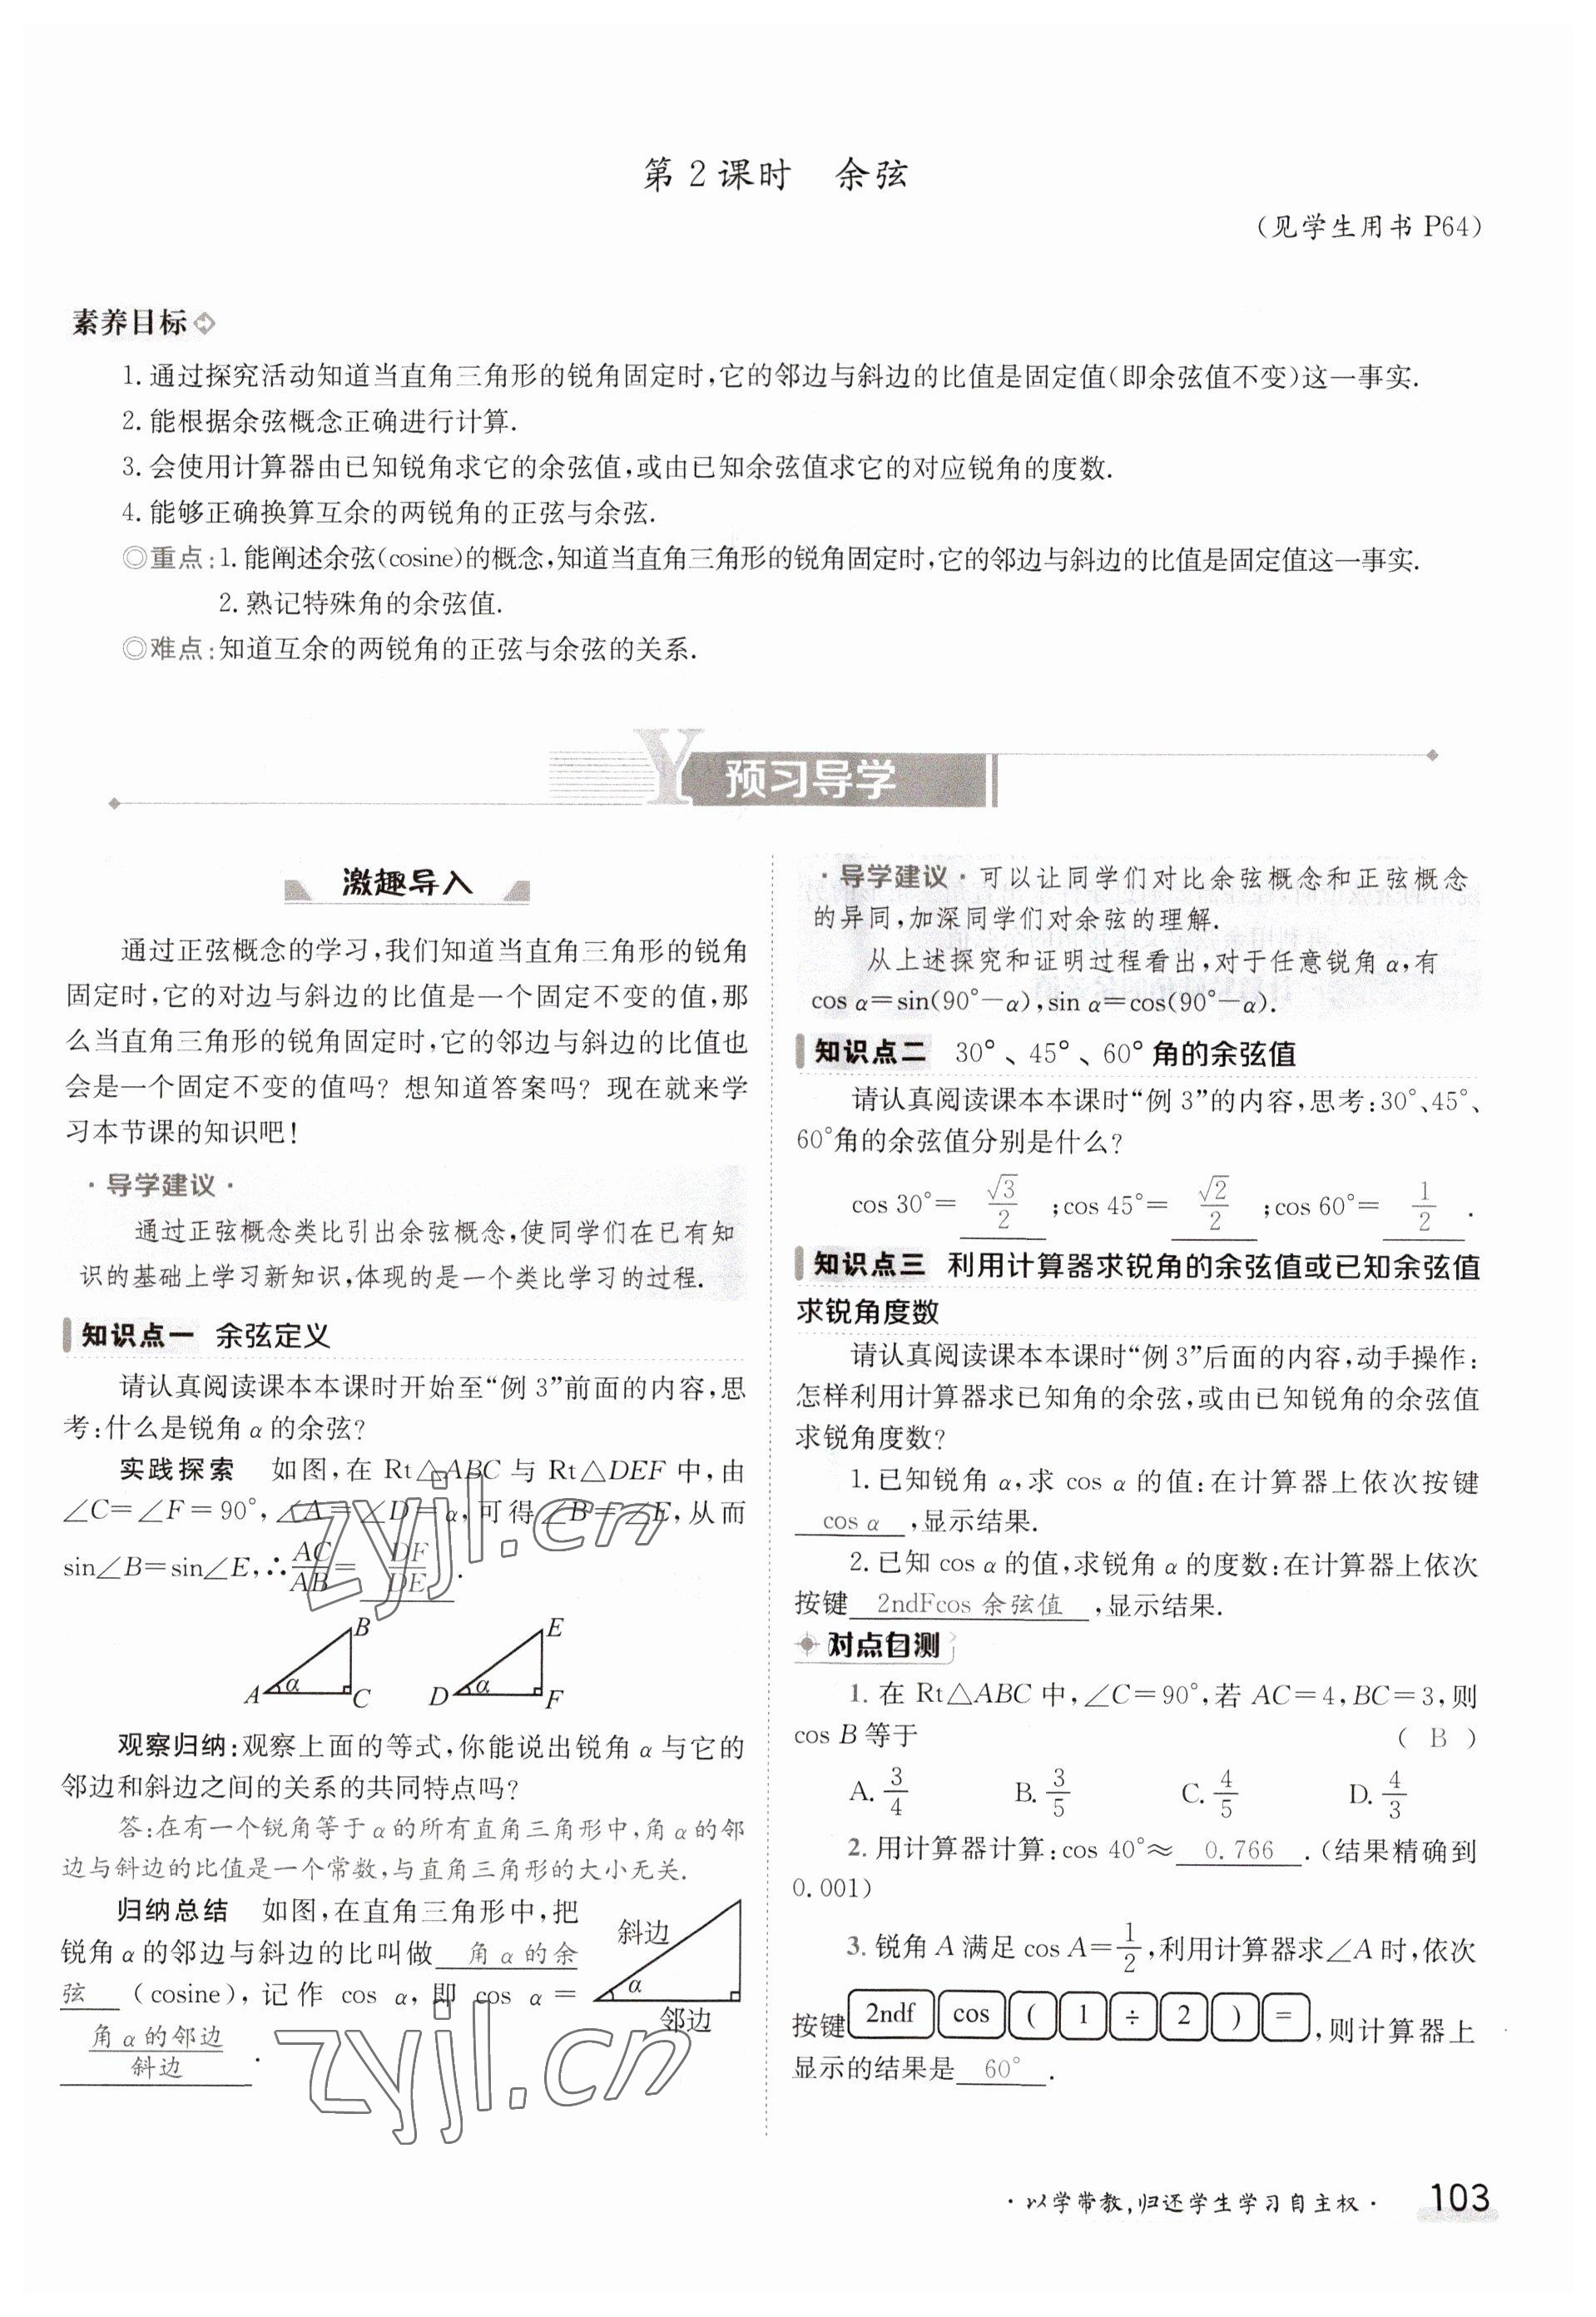 第 2 课时　余弦
(见学生用书 P64)
素养目标
1. 通过探究活动知道当直角三角形的锐角固定时,它的邻边与斜边的比值是固定值(即余弦值不变)这一事实.
2. 能根据余弦概念正确进行计算.
3. 会使用计算器由已知锐角求它的余弦值,或由已知余弦值求它的对应锐角的度数.
4. 能够正确换算互余的两锐角的正弦与余弦.
◎重点:1. 能阐述余弦(cosine)的概念,知道当直角三角形的锐角固定时,它的邻边与斜边的比值是固定值这一事实.
2. 熟记特殊角的余弦值.
◎难点:知道互余的两锐角的正弦与余弦的关系.
Y 预习导学
激趣导入
通过正弦概念的学习,我们知道当直角三角形的锐角
固定时,它的对边与斜边的比值是一个固定不变的值,那
么当直角三角形的锐角固定时,它的邻边与斜边的比值也
会是一个固定不变的值吗？想知道答案吗？现在就来学
习本节课的知识吧!
·导学建议·
通过正弦概念类比引出余弦概念,使同学们在已有知
识的基础上学习新知识,体现的是一个类比学习的过程.
知识点一　余弦定义
请认真阅读课本本课时开始至“例 3”前面的内容,思
考:什么是锐角 α 的余弦?
实践探索　如图,在 Rt△ABC 与 Rt△DEF 中,由
∠C=∠F=90°,∠A=∠D=α,可得∠B=∠E,从而
sin∠B=sin∠E,∴AC/AB=DF/DE.
A B C α D E F α
观察归纳:观察上面的等式,你能说出锐角 α 与它的
邻边和斜边之间的关系的共同特点吗?
答:在有一个锐角等于 α 的所有直角三角形中,角 α 的邻
边与斜边的比值是一个常数,与直角三角形的大小无关.
归纳总结　如图,在直角三角形中,把
锐角 α 的邻边与斜边的比叫做 角 α 的余
弦 (cosine),记作 cos α,即 cos α=
角 α 的邻边/斜边.
斜边 α 邻边
·导学建议·可以让同学们对比余弦概念和正弦概念
的异同,加深同学们对余弦的理解.
从上述探究和证明过程看出,对于任意锐角 α,有
cos α=sin(90°−α),sin α=cos(90°−α).
知识点二　30°、45°、60°角的余弦值
请认真阅读课本本课时“例 3”的内容,思考:30°、45°、
60°角的余弦值分别是什么?
cos 30°= √3/2 ;cos 45°= √2/2 ;cos 60°= 1/2 .
知识点三　利用计算器求锐角的余弦值或已知余弦值
求锐角度数
请认真阅读课本本课时“例 3”后面的内容,动手操作:
怎样利用计算器求已知角的余弦,或由已知锐角的余弦值
求锐角度数?
1. 已知锐角 α,求 cos α 的值:在计算器上依次按键
cos α ,显示结果.
2. 已知 cos α 的值,求锐角 α 的度数:在计算器上依次
按键 2ndFcos 余弦值 ,显示结果.
对点自测
1. 在 Rt△ABC 中,∠C=90°,若 AC=4,BC=3,则
cos B 等于 ( B )
A. 3/4　B. 3/5　C. 4/5　D. 4/3
2. 用计算器计算:cos 40°≈ 0.766 .(结果精确到
0.001)
3. 锐角 A 满足 cos A=1/2,利用计算器求∠A 时,依次
按键 2ndf cos ( 1 ÷ 2 ) = ,则计算器上
显示的结果是 60° .
zyjl.cn
zyjl.cn
·以学带教,归还学生学习自主权·　103